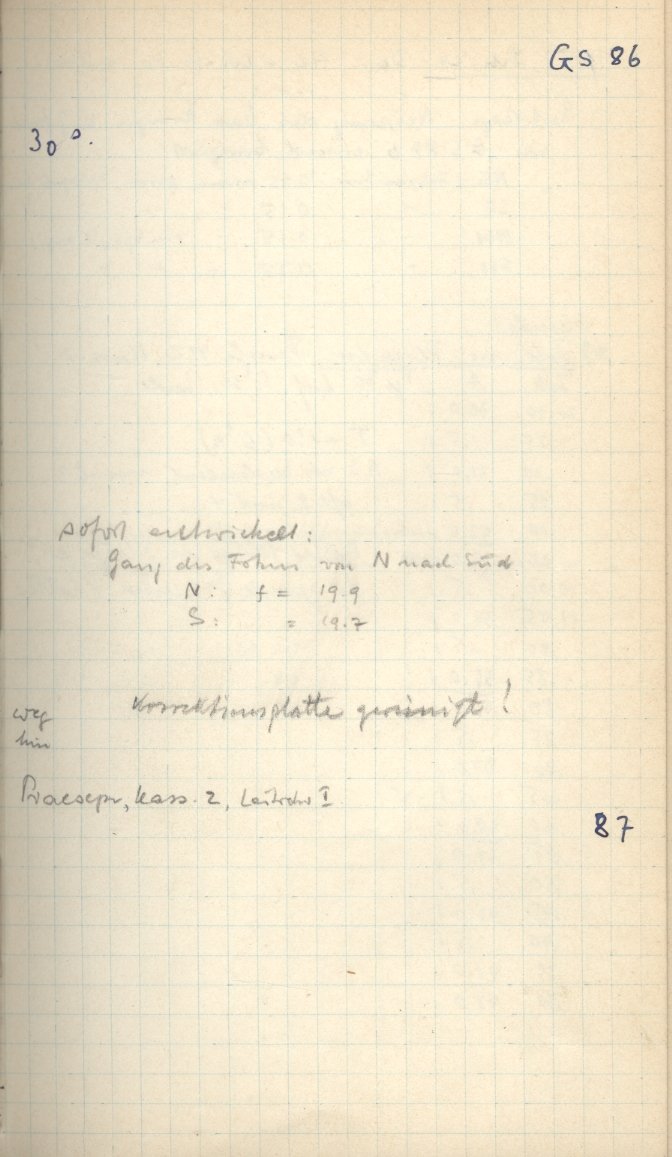 GS 86
30°.
sofort entwickelt:
Gang des Fokus von N nach Süd
N: f = 19.9
S: = 19.7
Korrektionsplatte gereinigt!
weg
hin
Praesepe, Kass. 2, Leitrohr I
87